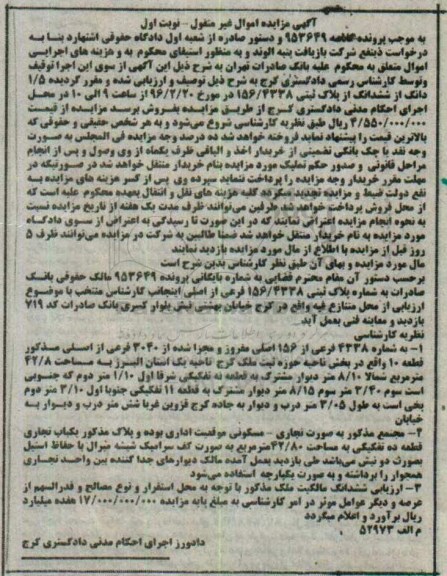 آگهی مزایده اموال غیر منقول - نوبت اول
به موجب پرونده کلاسه ۹۵۳۶۴۹ و دستور صادره از شعبه اول دادگاه حقوقی اشتهارد بنا به
درخواست ذینفع شرکت بازیافت پنبه الوند و به منظور استیفای محکوم به و هزینه های اجرایی
اموال متعلق به محکوم علیه بانک صادرات تهران به شرح ذیل این آگهی از سوی این اجرا توقیف
وتوسط کارشناس رسمی دادگستری کرج به شرح ذیل توصیف و ارزیابی شده و مقرر گردیده ۱/۵
دانگ از ششدانگ از پلاک ثبتی ۱۵۶/۴۳۳۸ در مورخ ۹۶/۲/۲۰ از ساعت ۹ الی ۱۰ در محل
اجرای احکام مدنی دادگستری کرج از طریق مزایده بفروش برسد مزایده از قیمت
۴/۵۵۰/۰۰۰/۰۰۰ ریال طبق نظریه کارشناسی شروع می‌شود و به هر شخص حقیقی و حقوقی که
بالاترین قیمت را پیشنهاد نماید فروخته خواهد شد ده درصد وجه مزایده فی المجلس به صورت
وجه نقد یا چک بانکی تضمینی از خریدار اخذ و الباقی ظرف یکماه از وی وصول و پس از انجام
مراحل قانونی و صدور حکم تملیک مورد مزایده بنام خریدار منتقل خواهد شد در صورتیکه در
مهلت مقرر خریدار وجه مزایده را پرداخت ننماید سپرده وی پس از کسر هزینه های مزایده به
نفع دولت ضبط و مزایده تجدید میگردد کلیه هزینه های نقل و انتقال بعهده محکوم علیه است که
از محل فروش پرداخت خواهد شد طرفین می‌توانند ظرف مدت یک هفته از تاریخ مزایده نسبت
به نحوه انجام مزایده اعتراض نمایند که در این صورت تا رسیدگی به اعتراض از سوی دادگاه
مورد مزایده به نام خریدار منتقل خواهد شد ضمنا طالبین به شرکت در مزایده می‌توانند ظرف ۵
روز قبل از مزایده با اطلاع از مال مورد مزایده بازدید نمایند
مال مورد مزایده و بهای آن طبق نظر کارشناس بدین شرح است
برحسب دستور آن مقام محترم قضایی به شماره بایگانی پرونده ۹۵۳۶۴۹ مالک حقوقی بانک
صادرات به شماره پلاک ثبتی ۱۵۶/۴۳۳۸ فرعی از اصلی اینجانب کارشناس منتخب با موضوع
ارزیابی از محل متنازع فیه واقع در کرج خیابان بهشتی نبش بلوار کسری بانک صادرات کد ۷۱۹
بازدید و معاینه فنی بعمل آید
نظریه کارشناسی
۱- به شماره ۴۳۳۸ فرعی از ۱۵۶ اصلی مفروز و مجزا شده از ۳۰۴۰ فرعی از اصلی مذکور
قطعه ۱۰ واقع در بخش ناحیه حوزه ثبت ملک کرج ناحیه یک استان البرز به مساحت ۴۲/۸
مترمربع شمالا ۸/۱۰ متر دیوار مشترک به قطعه به تفکیکی شرقا اول ۱/۱۰ متر دوم که جنوبی
است سوم ۳/۴۰ متر سوم ۸/۱۵ متر دیوار مشترک به قطعه ۱۱ تفکیکی جنوبا اول ۳/۱۰ متر دوم
پخی است به طول ۳/۰۵ متر درب و دیوار به جاده کرج قزوین غربا شش متر درب و دیوار به
خیابان
۲- مجتمع مذکور به صورت تجاری - مسکونی موقعیت اداری بوده و پلاک مذکور یکباب تجاری
قطعه ده تفکیکی به مساحت ۴۲/۸۰ مترمربع به صورت کف سرامیک شیشه میرال با حفاظ استیل
بصورت دو نبش می‌باشد طی بازدید بعمل آمده مالک دیوارهای جدا کننده بین واحد تجاری
همجوار را برداشته و به صورت یکپارچه استفاده می‌شود
۳- ارزیابی ششدانگ مالکیت ملک مذکور با توجه به محل استقرار و نوع مصالح و قدرالسهم از
عرصه و دیگر عوامل موثر در امر کارشناسی به مبلغ پایه مزایده ۱۷/۰۰۰/۰۰۰/۰۰۰ هفده میلیارد
ریال برآورد و اعلام میگردد
م الف ۵۲۹۷۳
دادورز اجرای احکام مدنی دادگستری کرج